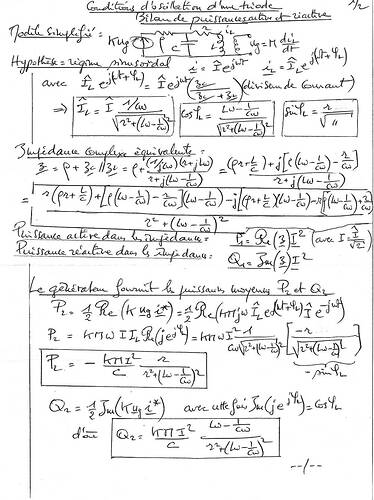 Conditions d'oscillation d'une triode 1/2
Bilan de puissances active et réactive
Modèle simplifié = Kug ρ C r L ug = M diL/dt
Hypothèse = régime sinusoïdal i = Î e^jωt iL = ÎL e^j(ωt+φL)
avec ÎL e^j(ωt+φL) = Î e^jωt (zc/(zc+zL)) (diviseur de courant)
⇒ ÎL = Î (1/Cω)/√(r²+(Lω-1/Cω)²) cosφL = (Lω-1/Cω)/√(r²+(Lω-1/Cω)²) sinφL = r/√ "
Impédance complexe équivalente =
z = ρ + zc // zL = ρ + (1/jCω)(r+jLω)/(r+j(Lω-1/Cω)) = ((ρr+L/C)+j[ρ(Lω-1/Cω)-r/Cω])/(r+j(Lω-1/Cω))
= r(ρr+L/C)+[ρ(Lω-1/Cω)-r/Cω](Lω-1/Cω)
r²+(Lω-1/Cω)²
Puissance active dans les impédances = P1 = Re(z) I² (avec I = Î/√2)
Puissance réactive dans les impédances = Q1 = Im(z) I²
Le générateur fournit les puissances moyennes P2 et Q2
P2 = 1/2 Re(K ug i*) = 1/2 Re(KMjω ÎL e^j(ωt+φL) Î e^-jωt)
P2 = KMω I IL Re(j e^jφL) = KMω I² 1/(Cω√(r²+(Lω-1/Cω)²)) [-r/√(r²+(Lω-1/Cω)²)]
P2 = - KMI²/C r/(r²+(Lω-1/Cω)²) -sinφL
Q2 = 1/2 Im(K ug i*) avec cette fois Im(j e^jφL) = cosφL
d'où Q2 = KMI²/C (Lω-1/Cω)/(r²+(Lω-1/Cω)²)
--/--